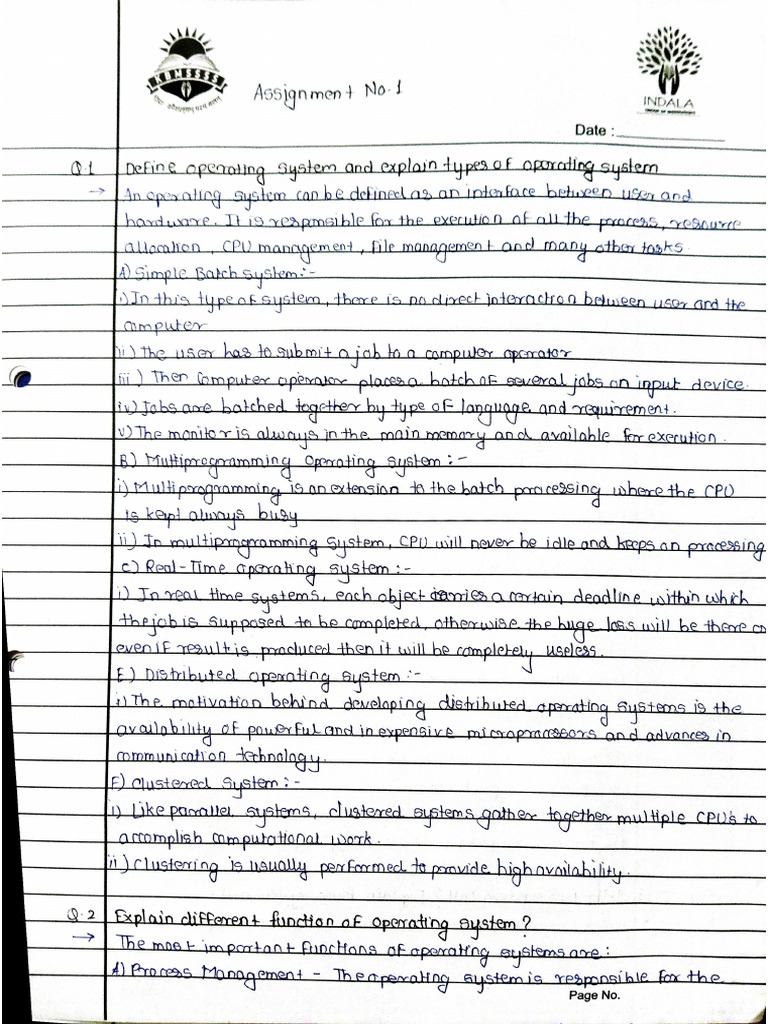 KBMSSSS
Assignment No.1
INDALA
Date :
Q.1 Define operating system and explain types of operating system
→ An operating system can be defined as an interface between user and
hardware. It is responsible for the execution of all the process, resource
allocation, CPU management, file management and many other tasks.
A) Simple Batch system:-
i) In this type of system, there is no direct interaction between user and the
computer
ii) The user has to submit a job to a computer operator
iii) Then computer operator places a batch of several jobs on input device.
iv) Jobs are batched together by type of language and requirement.
v) The monitor is always in the main memory and available for execution.
B) Multiprogramming operating system:-
i) Multiprogramming is an extension to the batch processing where the CPU
is kept always busy
ii) In multiprogramming system, CPU will never be idle and keeps on processing
C) Real-Time operating system:-
i) In real time systems, each object carries a certain deadline within which
the job is supposed to be completed, otherwise the huge loss will be there or
even if result is produced then it will be completely useless.
E) Distributed operating system:-
i) The motivation behind developing distributed operating systems is the
availability of powerful and inexpensive microprocessors and advances in
communication technology.
F) Clustered system:-
i) Like parallel systems, clustered systems gather together multiple CPU's to
accomplish computational work.
ii) Clustering is usually performed to provide high availability.
Q.2 Explain different function of operating system?
→ The most important functions of operating systems are:
A) Process Management - The operating system is responsible for the
Page No.